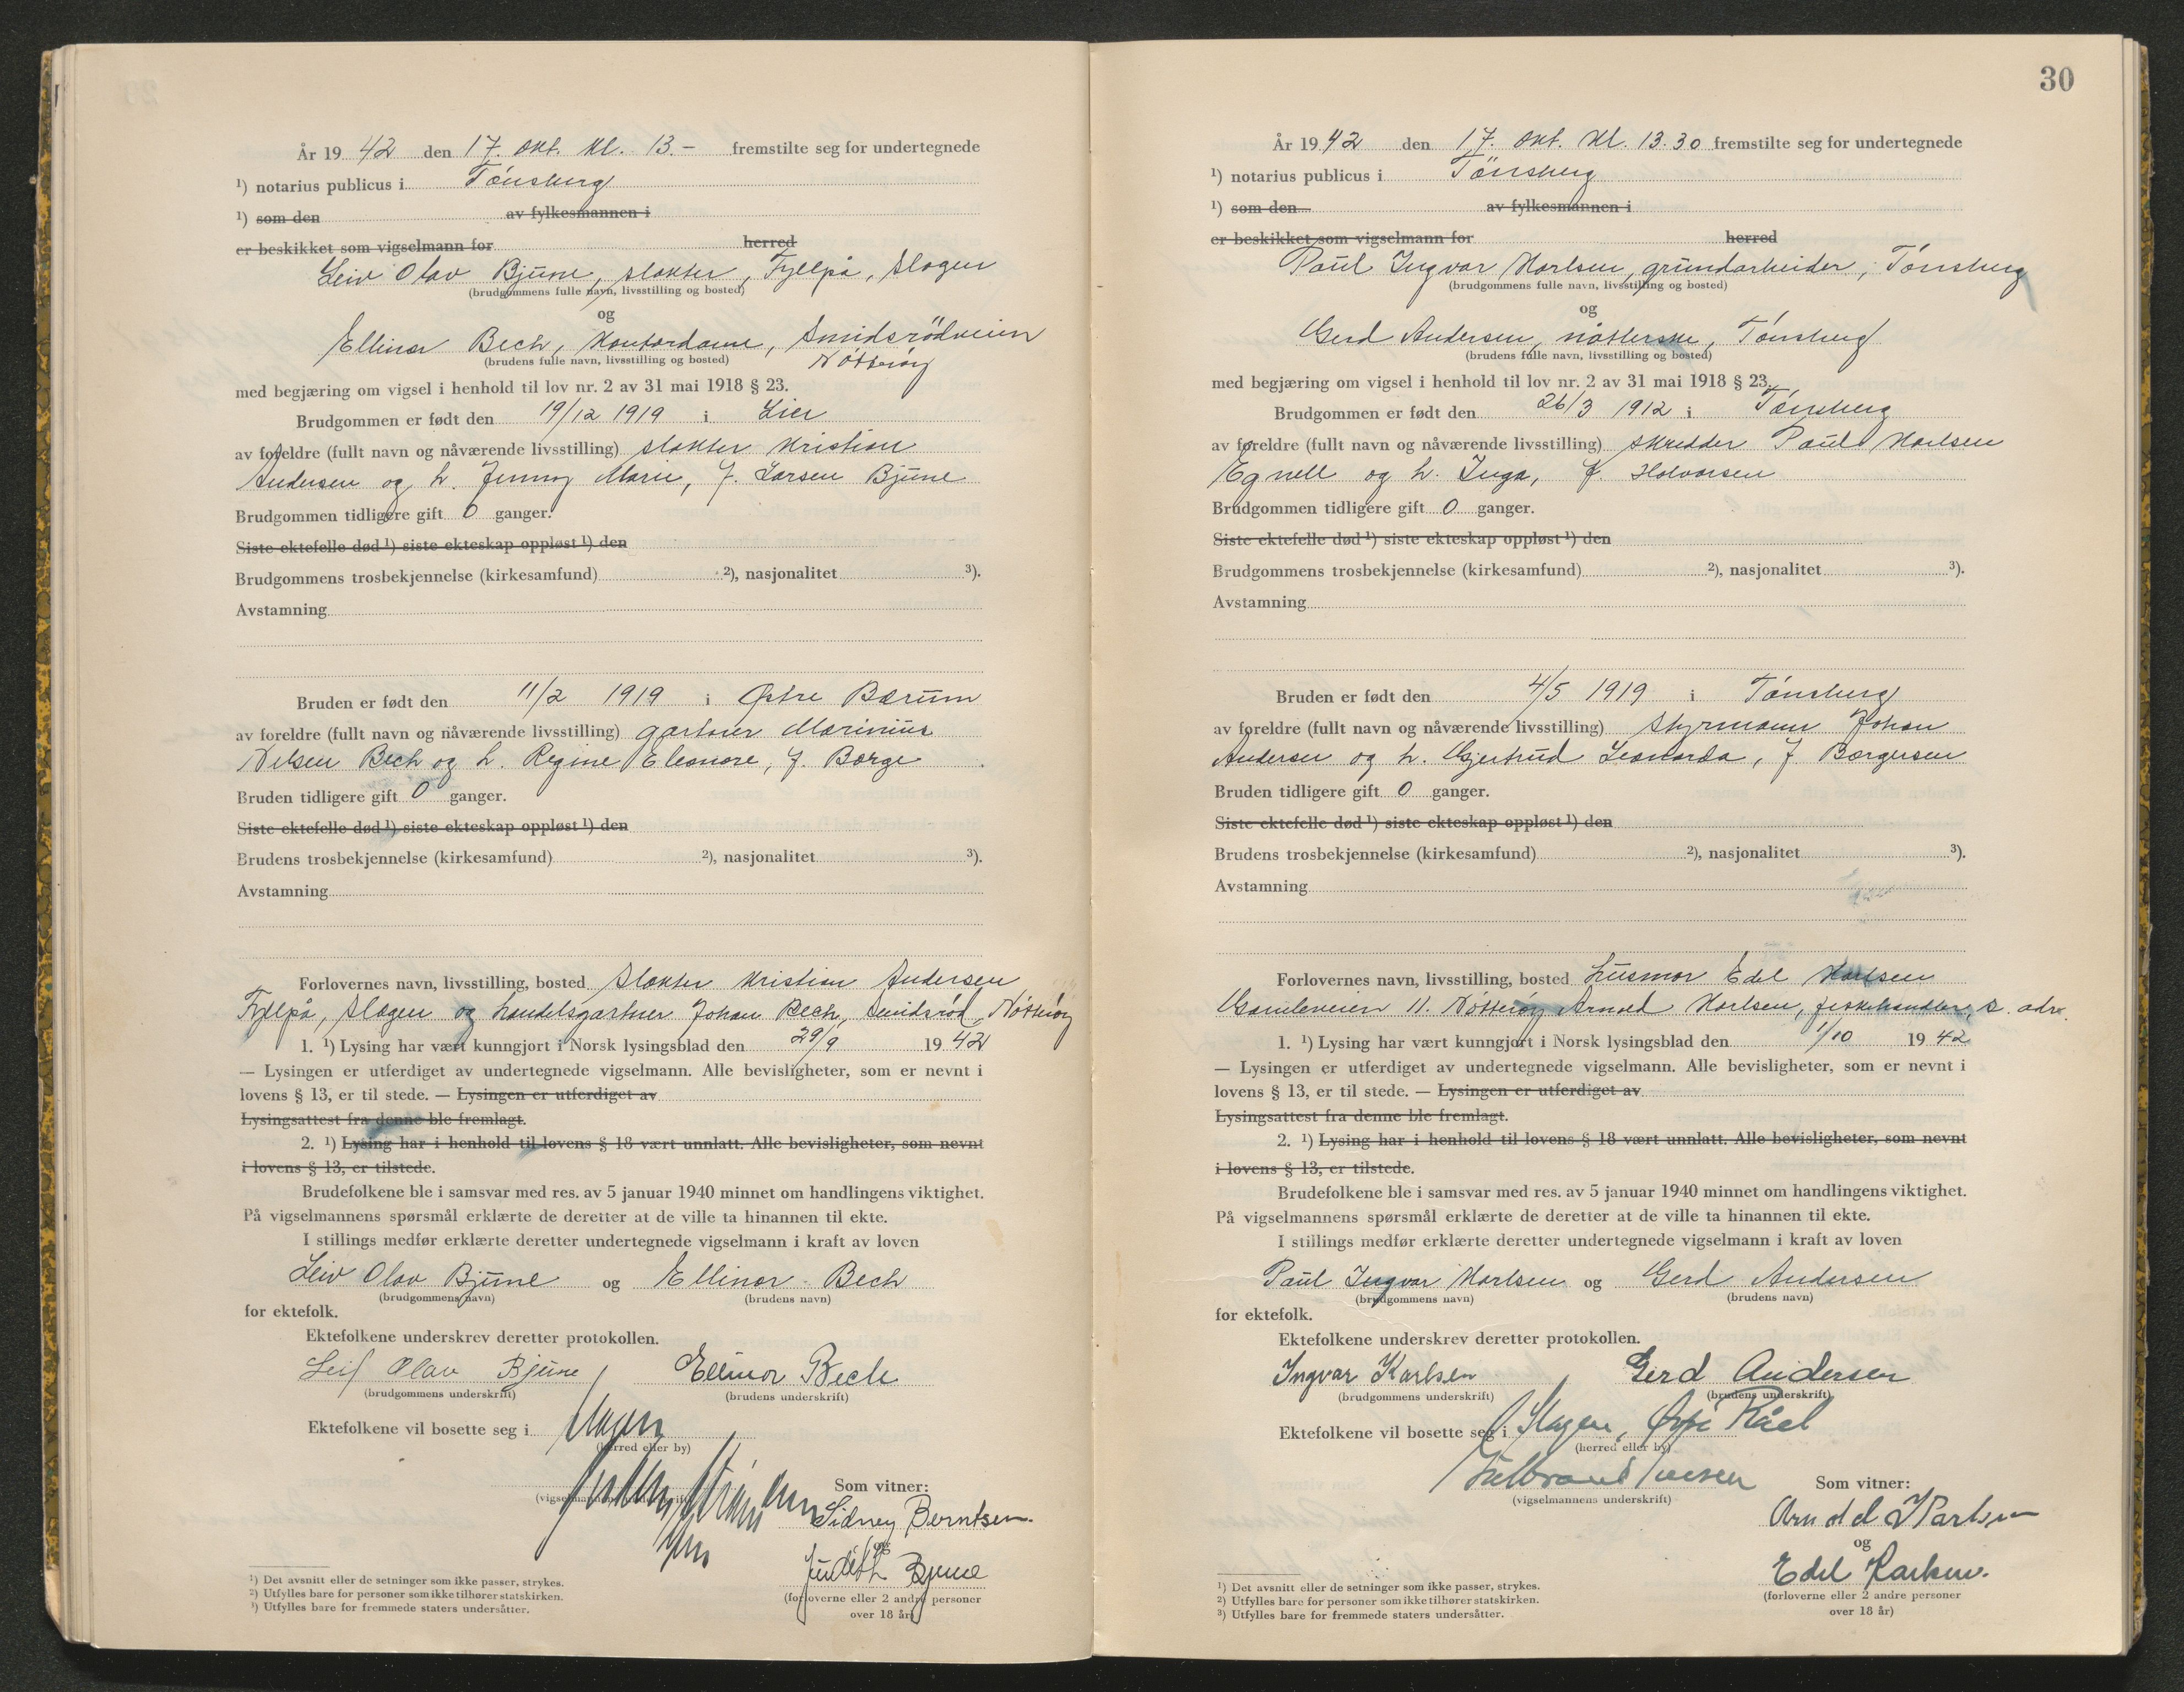 År 19 42 den 17. okt. kl. 13.- fremstilte seg for undertegnede
¹) notarius publicus i Tönsberg
¹) som den av fylkesmannen i
er beskikket som vigselmann for herred
Leiv Olav Bjune, slakter, Fyllpå, Slagen
(brudgommens fulle navn, livsstilling og bosted)
og
Ellinor Bech, kontordame, Smidsrödveien
(brudens fulle navn, livsstilling og bosted) Nötteröy
med begjæring om vigsel i henhold til lov nr. 2 av 31 mai 1918 § 23.
Brudgommen er født den 19/12 1919 i Lier
av foreldre (fullt navn og nåværende livsstilling) slakter Kristian
Andersen og h. Jenny Marie, f. Larsen Bjune
Brudgommen tidligere gift 0 ganger.
Siste ektefelle død ¹) siste ekteskap oppløst ¹) den
Brudgommens trosbekjennelse (kirkesamfund) ²), nasjonalitet ³).
Avstamning
Bruden er født den 11/2 1919 i Østre Bærum
av foreldre (fullt navn og nåværende livsstilling) gartner Marinius
Nilsen Bech og h. Regine Eleonore, f. Borge
Bruden tidligere gift 0 ganger.
Siste ektefelle død ¹) siste ekteskap oppløst ¹) den
Brudens trosbekjennelse (kirkesamfund) ²), nasjonalitet ³).
Avstamning
Forlovernes navn, livsstilling, bosted Slakter Kristian Andersen
Fyllpå, Slagen og handelsgartner Johan Bech, Smidsröd, Nötteröy
1. ¹) Lysing har vært kunngjort i Norsk lysingsblad den 29/9 19 42
— Lysingen er utferdiget av undertegnede vigselmann. Alle bevisligheter, som er nevnt i
lovens § 13, er til stede. — Lysingen er utferdiget av
Lysingsattest fra denne ble fremlagt.
2. ¹) Lysing har i henhold til lovens § 18 vært unnlatt. Alle bevisligheter, som nevnt
i lovens § 13, er tilstede.
Brudefolkene ble i samsvar med res. av 5 januar 1940 minnet om handlingens viktighet.
På vigselmannens spørsmål erklærte de deretter at de ville ta hinannen til ekte.
I stillings medfør erklærte deretter undertegnede vigselmann i kraft av loven
Leiv Olav Bjune og Ellinor Bech
(brudgommens navn) (brudens navn)
for ektefolk.
Ektefolkene underskrev deretter protokollen.
Leif Olav Bjune Ellinor Bech
(brudgommens underskrift) (brudens underskrift)
Ektefolkene vil bosette seg i Slagen
(herred eller by)
Som vitner:
(vigselmannens underskrift)
Sidney Berntsen.
og
Judith Bjune
(forloverne eller 2 andre personer
over 18 år)
¹) Det avsnitt eller de setninger som ikke passer, strykes.
²) Utfylles bare for personer som ikke tilhører statskirken.
³) Utfylles bare for fremmede staters undersåtter.
30
År 19 42 den 17. okt. kl. 13.30 fremstilte seg for undertegnede
¹) notarius publicus i Tönsberg
¹) som den av fylkesmannen i
er beskikket som vigselmann for herred
Paul Ingvar Karlsen, grunnarbeider, Tönsberg
(brudgommens fulle navn, livsstilling og bosted)
og
Gerd Andersen, nåtlerske, Tönsberg
(brudens fulle navn, livsstilling og bosted)
med begjæring om vigsel i henhold til lov nr. 2 av 31 mai 1918 § 23.
Brudgommen er født den 26/3 1912 i Tönsberg
av foreldre (fullt navn og nåværende livsstilling) skredder Paul Karlsen
Egnell og h. Inga, f. Halvorsen
Brudgommen tidligere gift 0 ganger.
Siste ektefelle død ¹) siste ekteskap oppløst ¹) den
Brudgommens trosbekjennelse (kirkesamfund) ²), nasjonalitet ³).
Avstamning
Bruden er født den 4/5 1919 i Tönsberg
av foreldre (fullt navn og nåværende livsstilling) Styrmann Johan
Andersen og h. Gjertrud Leonarda, f Borgersen
Bruden tidligere gift 0 ganger.
Siste ektefelle død ¹) siste ekteskap oppløst ¹) den
Brudens trosbekjennelse (kirkesamfund) ²), nasjonalitet ³).
Avstamning
Forlovernes navn, livsstilling, bosted husmor Edel Karlsen
Gamleveien 11. Nötteröy Arnold Karlsen, fiskehandler, s. adr.
1. ¹) Lysing har vært kunngjort i Norsk lysingsblad den 1/10 19 42
— Lysingen er utferdiget av undertegnede vigselmann. Alle bevisligheter, som er nevnt i
lovens § 13, er til stede. — Lysingen er utferdiget av
Lysingsattest fra denne ble fremlagt.
2. ¹) Lysing har i henhold til lovens § 18 vært unnlatt. Alle bevisligheter, som nevnt
i lovens § 13, er tilstede.
Brudefolkene ble i samsvar med res. av 5 januar 1940 minnet om handlingens viktighet.
På vigselmannens spørsmål erklærte de deretter at de ville ta hinannen til ekte.
I stillings medfør erklærte deretter undertegnede vigselmann i kraft av loven
Paul Ingvar Karlsen og Gerd Andersen
(brudgommens navn) (brudens navn)
for ektefolk.
Ektefolkene underskrev deretter protokollen.
Ingvar Karlsen Gerd Andersen
(brudgommens underskrift) (brudens underskrift)
Ektefolkene vil bosette seg i Slagen, Råel
(herred eller by)
Som vitner:
(vigselmannens underskrift)
Arnold Karlsen
og
Edel Karlsen.
(forloverne eller 2 andre personer
over 18 år)
¹) Det avsnitt eller de setninger som ikke passer, strykes.
²) Utfylles bare for personer som ikke tilhører statskirken.
³) Utfylles bare for fremmede staters undersåtter.